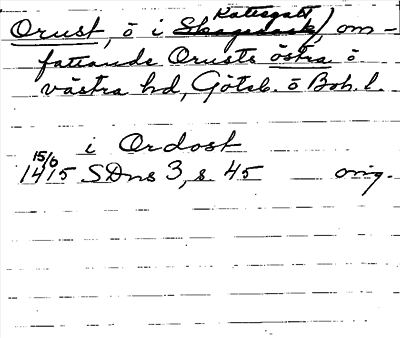 Kattegatt
Orust, ö i Skagerack, om-
fattande Orusts östra o
västra hd, Göteb. o Boh. l.
i Ordost
15/6
1415 SDns 3, s. 45 orig.